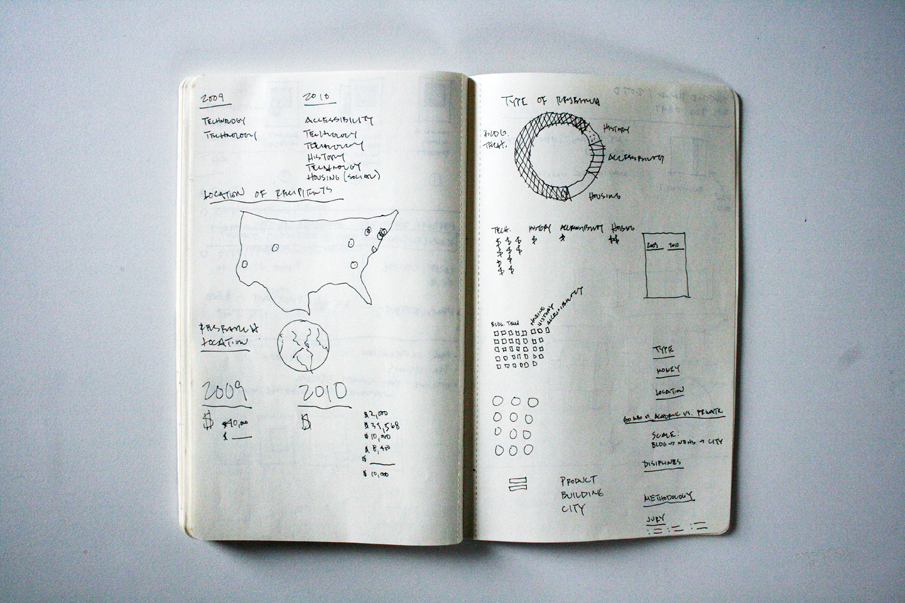 2009
TECHNOLOGY
TECHNOLOGY
2010
ACCESSIBILITY
TECHNOLOGY
TECHNOLOGY
HISTORY
TECHNOLOGY
HOUSING (SOCIAL)
LOCATION OF RECIPIENTS
RESEARCH
LOCATION
2009
$
$40,000
$
2010
$
$2,000
$10,000
$
$10,000
TYPE OF RESEARCH
BLDG.
TECH.
HISTORY
ACCESSIBILITY
HOUSING
TECH. HISTORY ACCESSIBILITY HOUSING
2009 2010
BLDG TECH
HOUSING
HISTORY
ACCESSIBILITY
TYPE
MONEY
LOCATION
ACADEMIC VS. PRIVATE
SCALE:
BLDG → NBHD → CITY
DISIPLINES
METHODOLOGY
JURY
PRODUCT
BUILDING
CITY